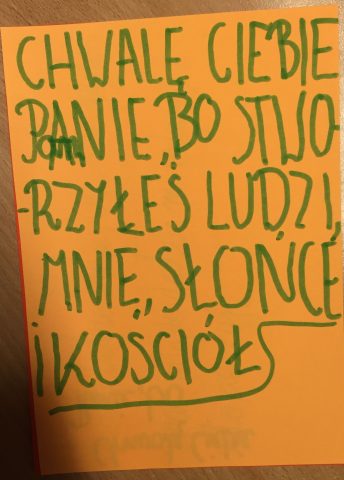 CHWALĘ CIEBIE
PANIE, BO STWO-
-RZYŁEŚ LUDZI,
MNIE, SŁOŃCE
I KOŚCIÓŁ